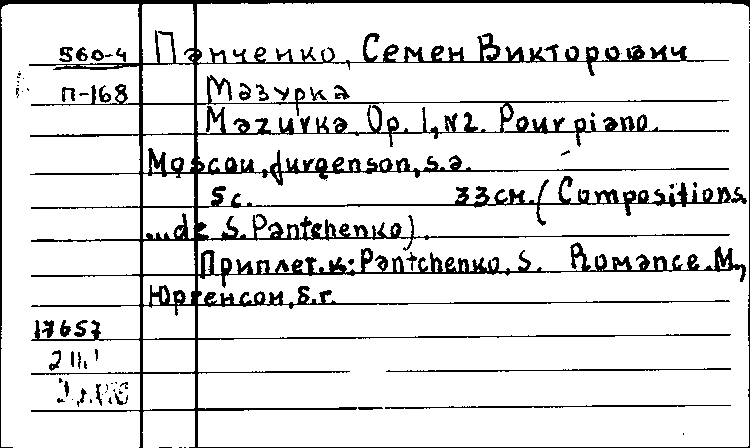 560-4 Панченко, Семен Викторович
П-168 Мазурка
Mazurka. Op. 1, N2. Pour piano.
Moscou, Jurgenson, s.a.
5 с. 33 см. (Compositions
...de S. Pantchenko).
Приплет. к: Pantchenko, S. Romance. М.,
Юргенсон, б.г.
17657